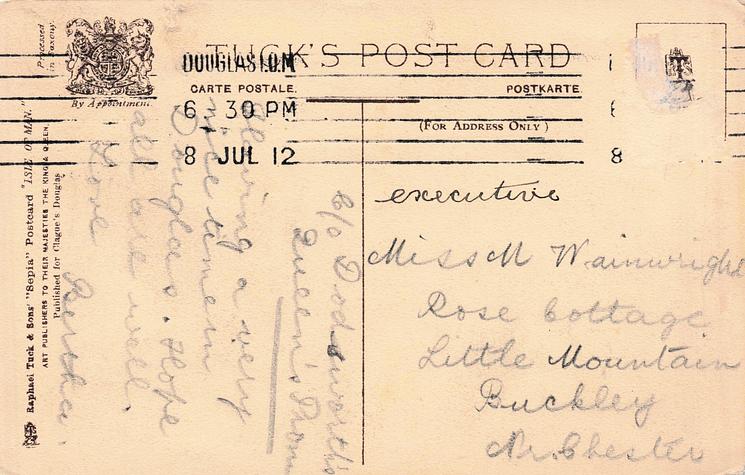 TUCK'S POST CARD
DOUGLAS I.O.M
CARTE POSTALE.
POSTKARTE
6 30 PM
(FOR ADDRESS ONLY)
8 JUL 12
8
By Appointment.
Processed
in Saxony.
Raphael Tuck & Sons' "Sepia" Postcard "ISLE OF MAN."
ART PUBLISHERS TO THEIR MAJESTIES THE KING & QUEEN.
Published for Clague's Douglas
C/o Dodsworth's
Queen's Prom
Having a very
nice time in
Douglas. Hope
all are well.
Love
Bertha.
executive
Miss M Wainwright
Rose Cottage
Little Mountain
Buckley
Nr. Chester